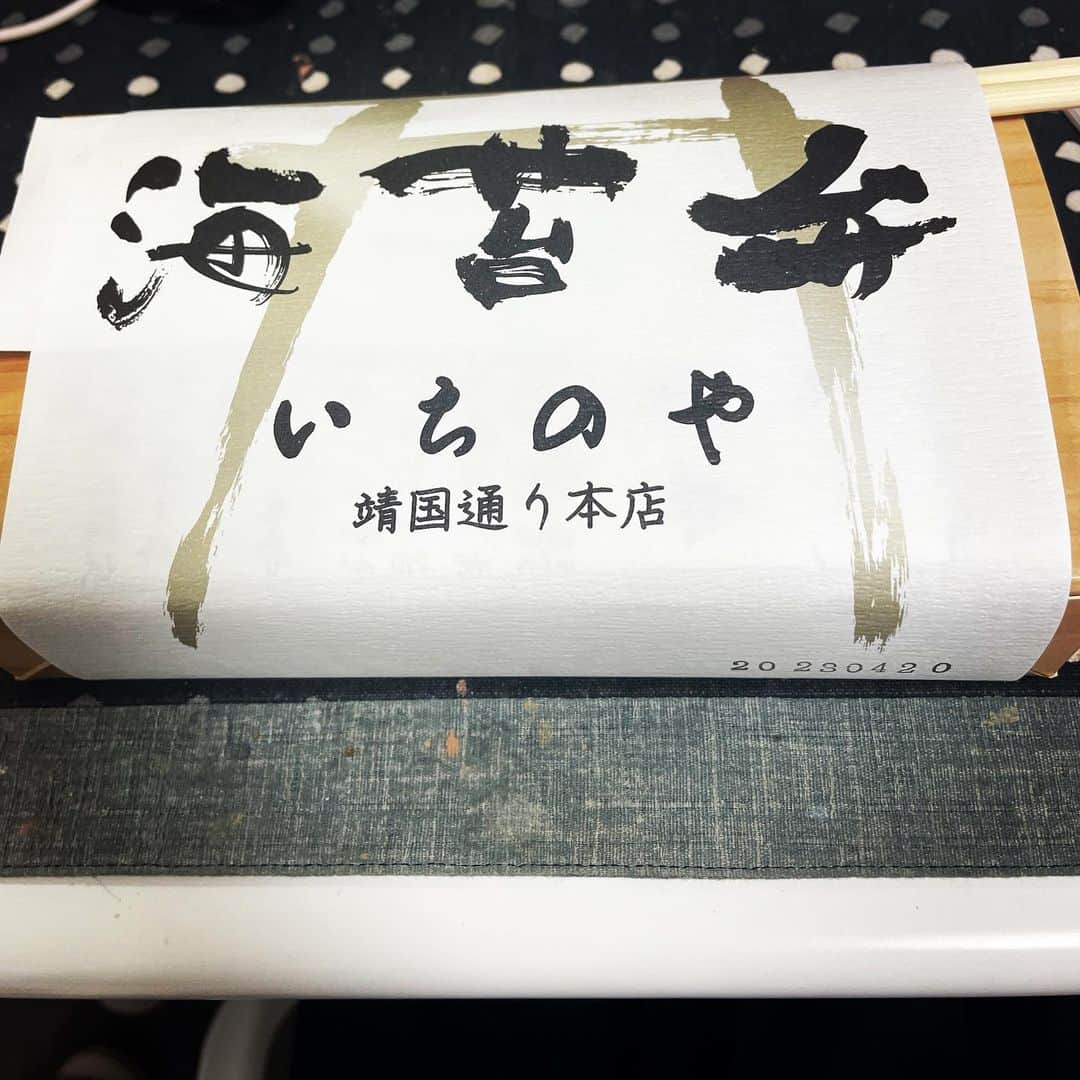 海苔弁
いちのや
靖国通り本店
20 230420